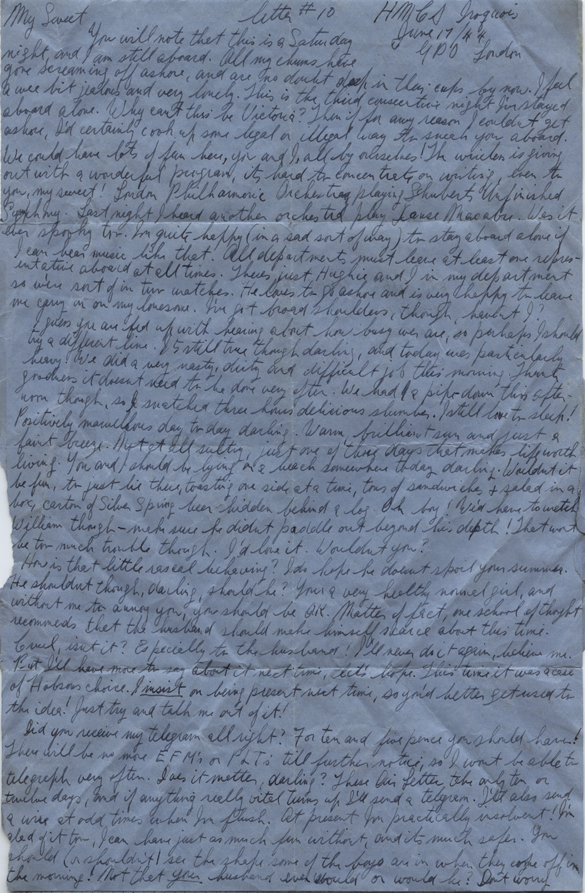 My Sweet letter #10 HMCS Iroquois
June 17/44
GPO London
You will note that this is a Saturday
night, and I am still aboard. All my chums have
gone screaming off ashore, and are no doubt deep in their cups by now. I feel
a wee bit jealous and very lonely. This is the third consecutive night I've stayed
aboard alone. Why can't this be Victoria? Then if for any reason I couldn't get
ashore, I'd certainly cook up some legal or illegal way to sneak you aboard.
We could have lots of fun here, you and I, all by ourselves! The wireless is giving
out with a wonderful program, it's hard to concentrate on writing, even to
you, my sweet! London Philharmonic Orchestra playing Shubert's Unfinished
Symphony. Last night I heard another orchestra play Danse Macabre. Was it
ever spooky too. I'm quite happy (in a sad sort of way) to stay aboard alone if
I can hear music like that. All departments must leave at least one repres-
entative aboard at all times. There's just Hughie and I in my department
so we're sort of in two watches. He loves to go ashore and is very happy to leave
me carry on on my lonesome. I've got broad shoulders, though, haven't I?
I guess you are fed up with hearing about how busy we are, so perhaps I should
try a different line. It's still true though darling, and today was particularly
heavy! We did a very nasty, dirty and difficult job this morning. Thank
goodness it doesn't need to be done very often. We had a pipe down this after-
noon though, so I snatched three hours delicious slumber. I still love to sleep!
Positively marvellous day to-day darling. Warm brilliant sun and just a
faint breeze. Not at all sultry, just one of those days that makes life worth
living. You and I should be lying on a beach somewhere to-day darling. Wouldn't it
be fun, to just lie there, toasting one side at a time, tons of sandwiches & salad in a
box, carton of Silver Spring beer hidden behind a log. Oh boy! We'd have to watch
William though – make sure he didn't paddle out beyond his depth! That won't
be too much trouble though. I'd love it. Wouldn't you?
How is that little rascal behaving? I do hope he doesn't spoil your summer.
He shouldn't though, darling, should he? You're a very healthy normal girl, and
without me to annoy you, you should be OK. Matter of fact, one school of thought
recomends that the husband should make himself scarce about this time.
Cruel, isn't it? Especially to the husband! I'll never do it again, believe me.
But I'll have more to say about it next time, let's hope. This time it was a case
of Hobson's choice. I insist on being present next time, so you'd better get used to
the idea! Just try and talk me out of it!
Did you receive my telegram all right? For ten and five pence you should have!
There will be no more EFM's or till further notice, so I won't be able to
telegraph very often. Does it matter, darling? These Air Letters take only ten or
twelve days, and if anything really vital turns up I'll send a telegram. I'll also send
a wire at odd times when I'm flush. At present I'm practically insolvent! I'm
glad of it too, I can have just as much fun without, and it's much safer. You
should (or shouldn't) see the shape some of the boys are in when they come off in
the morning! Not that your husband ever would or would he? Don't worry